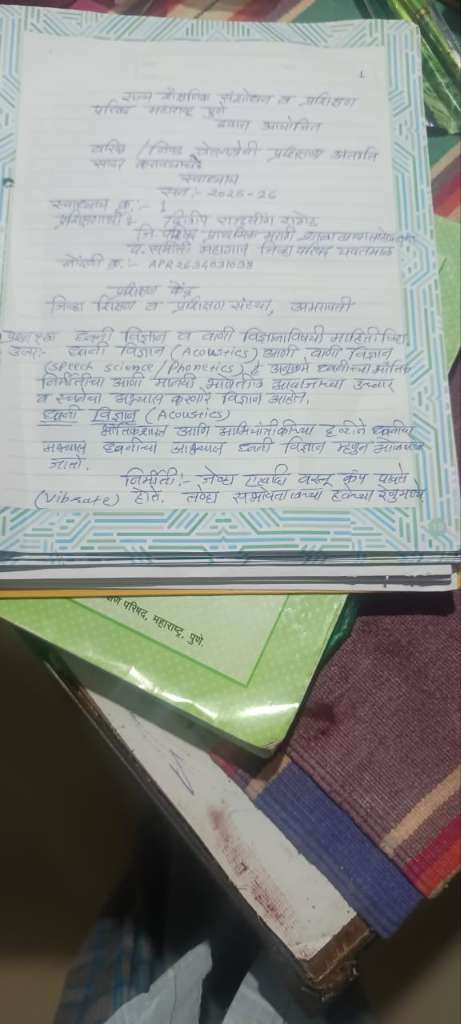 1
राज्य शैक्षणिक संशोधन व प्रशिक्षण
परिषद महाराष्ट्र पुणे
द्वारा आयोजित
वरिष्ठ / निवड वेतनश्रेणी प्रशिक्षण अंतर्गत
सादर करावयाचे
स्वाध्याय
सन :- 2025-26
स्वाध्याय क्र. :- 1
प्रशिक्षणार्थी :-
जि. प. प्राथमिक मराठी शाळा
जिल्हा परिषद यवतमाळ
नोंदणी क्र. :-
प्रशिक्षण केंद्र
जिल्हा शिक्षण व प्रशिक्षण संस्था, अमरावती
ध्वनी विज्ञान व वाणी विज्ञानाविषयी माहिती लिहा
उत्तर:- ध्वनी विज्ञान (Acoustics) आणि वाणी विज्ञान
(speech science / Phonetics) हे अनुक्रमे ध्वनीच्या भौतिक
निर्मितीचा आणि मानवी भाषेतील आवाजाच्या उच्चार
व रचनेचा अभ्यास करणारे विज्ञान आहेत.
ध्वनी विज्ञान (Acoustics)
भौतिकशास्त्र आणि अभियांत्रिकीच्या दृष्टीने ध्वनीचा
ध्वनीचा अभ्यास ध्वनी विज्ञान म्हणून ओळखला
जातो.
निर्मिती :- जेव्हा एखादी वस्तू कंप पावते
(vibrate) होते. तेव्हा सभोवतालच्या हवेच्या रेणूंमध्ये
परिषद, महाराष्ट्र, पुणे.